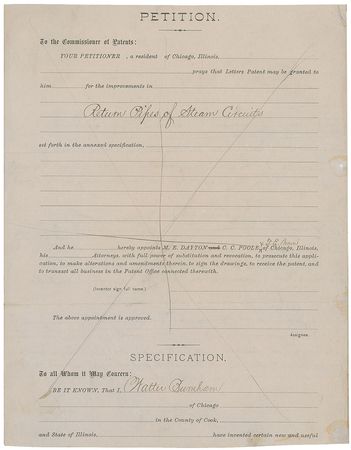 PETITION.
To the Commissioner of Patents:
YOUR PETITIONER, a resident of Chicago, Illinois.
prays that Letters Patent may be granted to
him for the improvements in
Return Pipes of Steam Circuits
set forth in the annexed specification,
And he hereby appoints M. E. DAYTON and C. C. POOLE, of Chicago, Illinois,
his Attorneys, with full power of substitution and revocation, to prosecute this appli-
cation, to make alterations and amendments therein, to sign the drawings, to receive the patent, and
to transact all business in the Patent Office connected therewith.
(Inventor sign full name.)
The above appointment is approved.
Assignee.
SPECIFICATION.
To all Whom it May Concern:
BE IT KNOWN, That I, Walter Burnham
of Chicago
in the County of Cook,
and State of Illinois, have invented certain new and useful